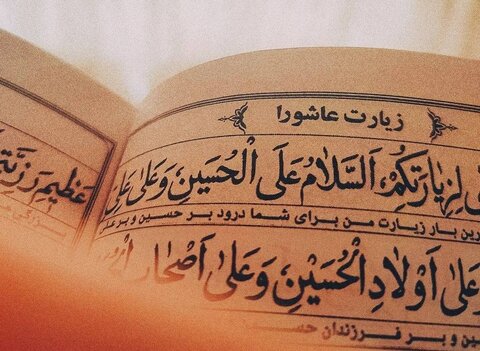 زیارت عاشورا
لِزِیارَتِکُمْ اَلسَّلامُ عَلَی الْحُسَیْنِ وَعَلی عَلِیِّ
بار زیارت من برای شما درود بر حسین و بر علی
وَعَلی اَوْلادِ الْحُسَیْنِ وَعَلی اَصْحابِ
و بر فرزندان
عَظیمِ رَزِیَّتی